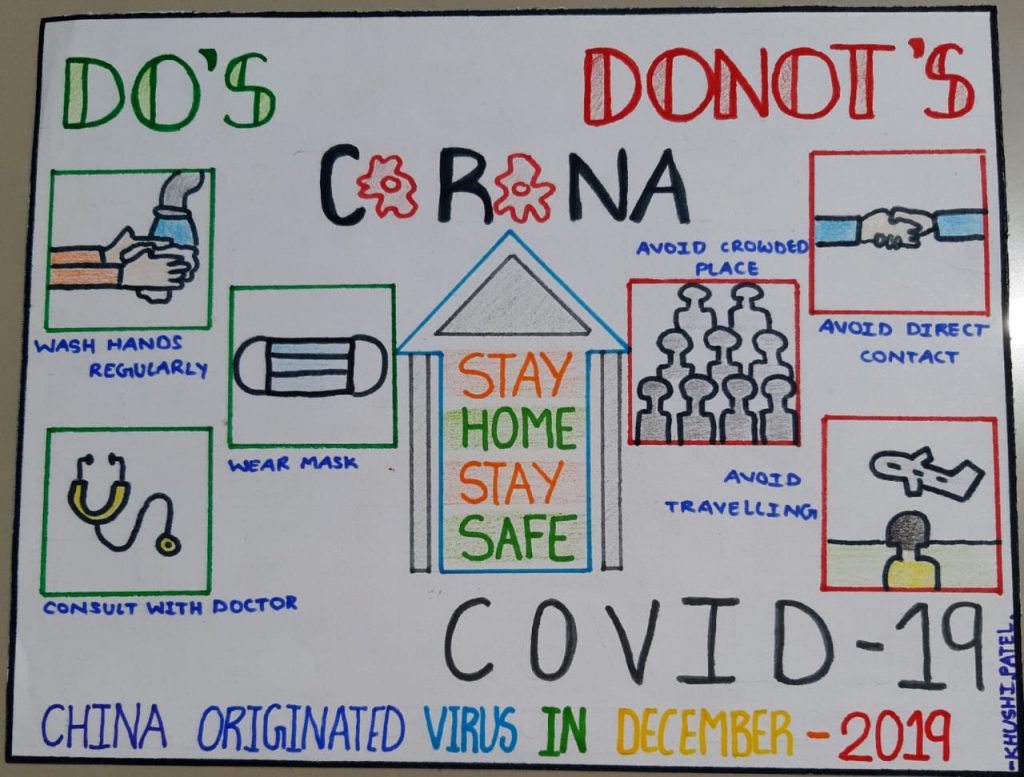 DO'S
DONOT'S
CORONA
WASH HANDS
REGULARLY
WEAR MASK
CONSULT WITH DOCTOR
STAY
HOME
STAY
SAFE
AVOID CROWDED
PLACE
AVOID DIRECT
CONTACT
AVOID
TRAVELLING
COVID-19
CHINA ORIGINATED VIRUS IN DECEMBER - 2019
-KHUSHI.PATEL.